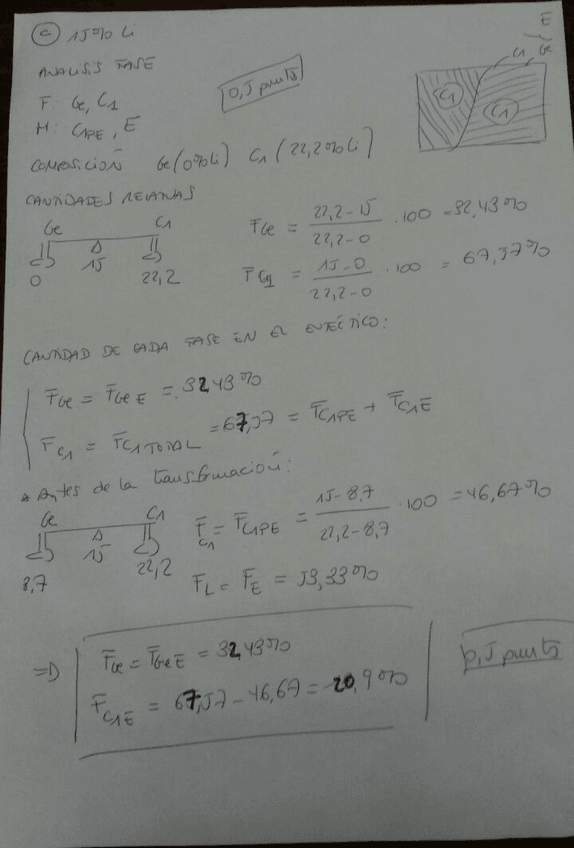 c) 15% Li
ANALISIS FASE
0,5 punts
F: Ge, C1
M: C1PE, E
C1
Ge
E
C1
C1
COMPOSICIÓN Ge (0% Li) C1 (22,2% Li)
CANTIDADES RELATIVAS
Ge C1
0 15 22,2
FGe = 22,2-15 / 22,2-0 · 100 = 32,43%
FC1 = 15-0 / 22,2-0 · 100 = 67,57%
CANTIDAD DE CADA FASE EN EL EUTÉCTICO:
FGe = FGe E = 32,43%
FC1 = FC1 TOTAL = 67,57 = FC1PE + FC1E
Antes de la transformación:
Ge C1
8,7 15 22,2
FC1 = FC1PE = 15-8,7 / 22,2-8,7 · 100 = 46,67%
FL = FE = 53,33%
=D FGe = FGe E = 32,43%
FC1E = 67,57 - 46,67 = 20,9%
0,5 punts